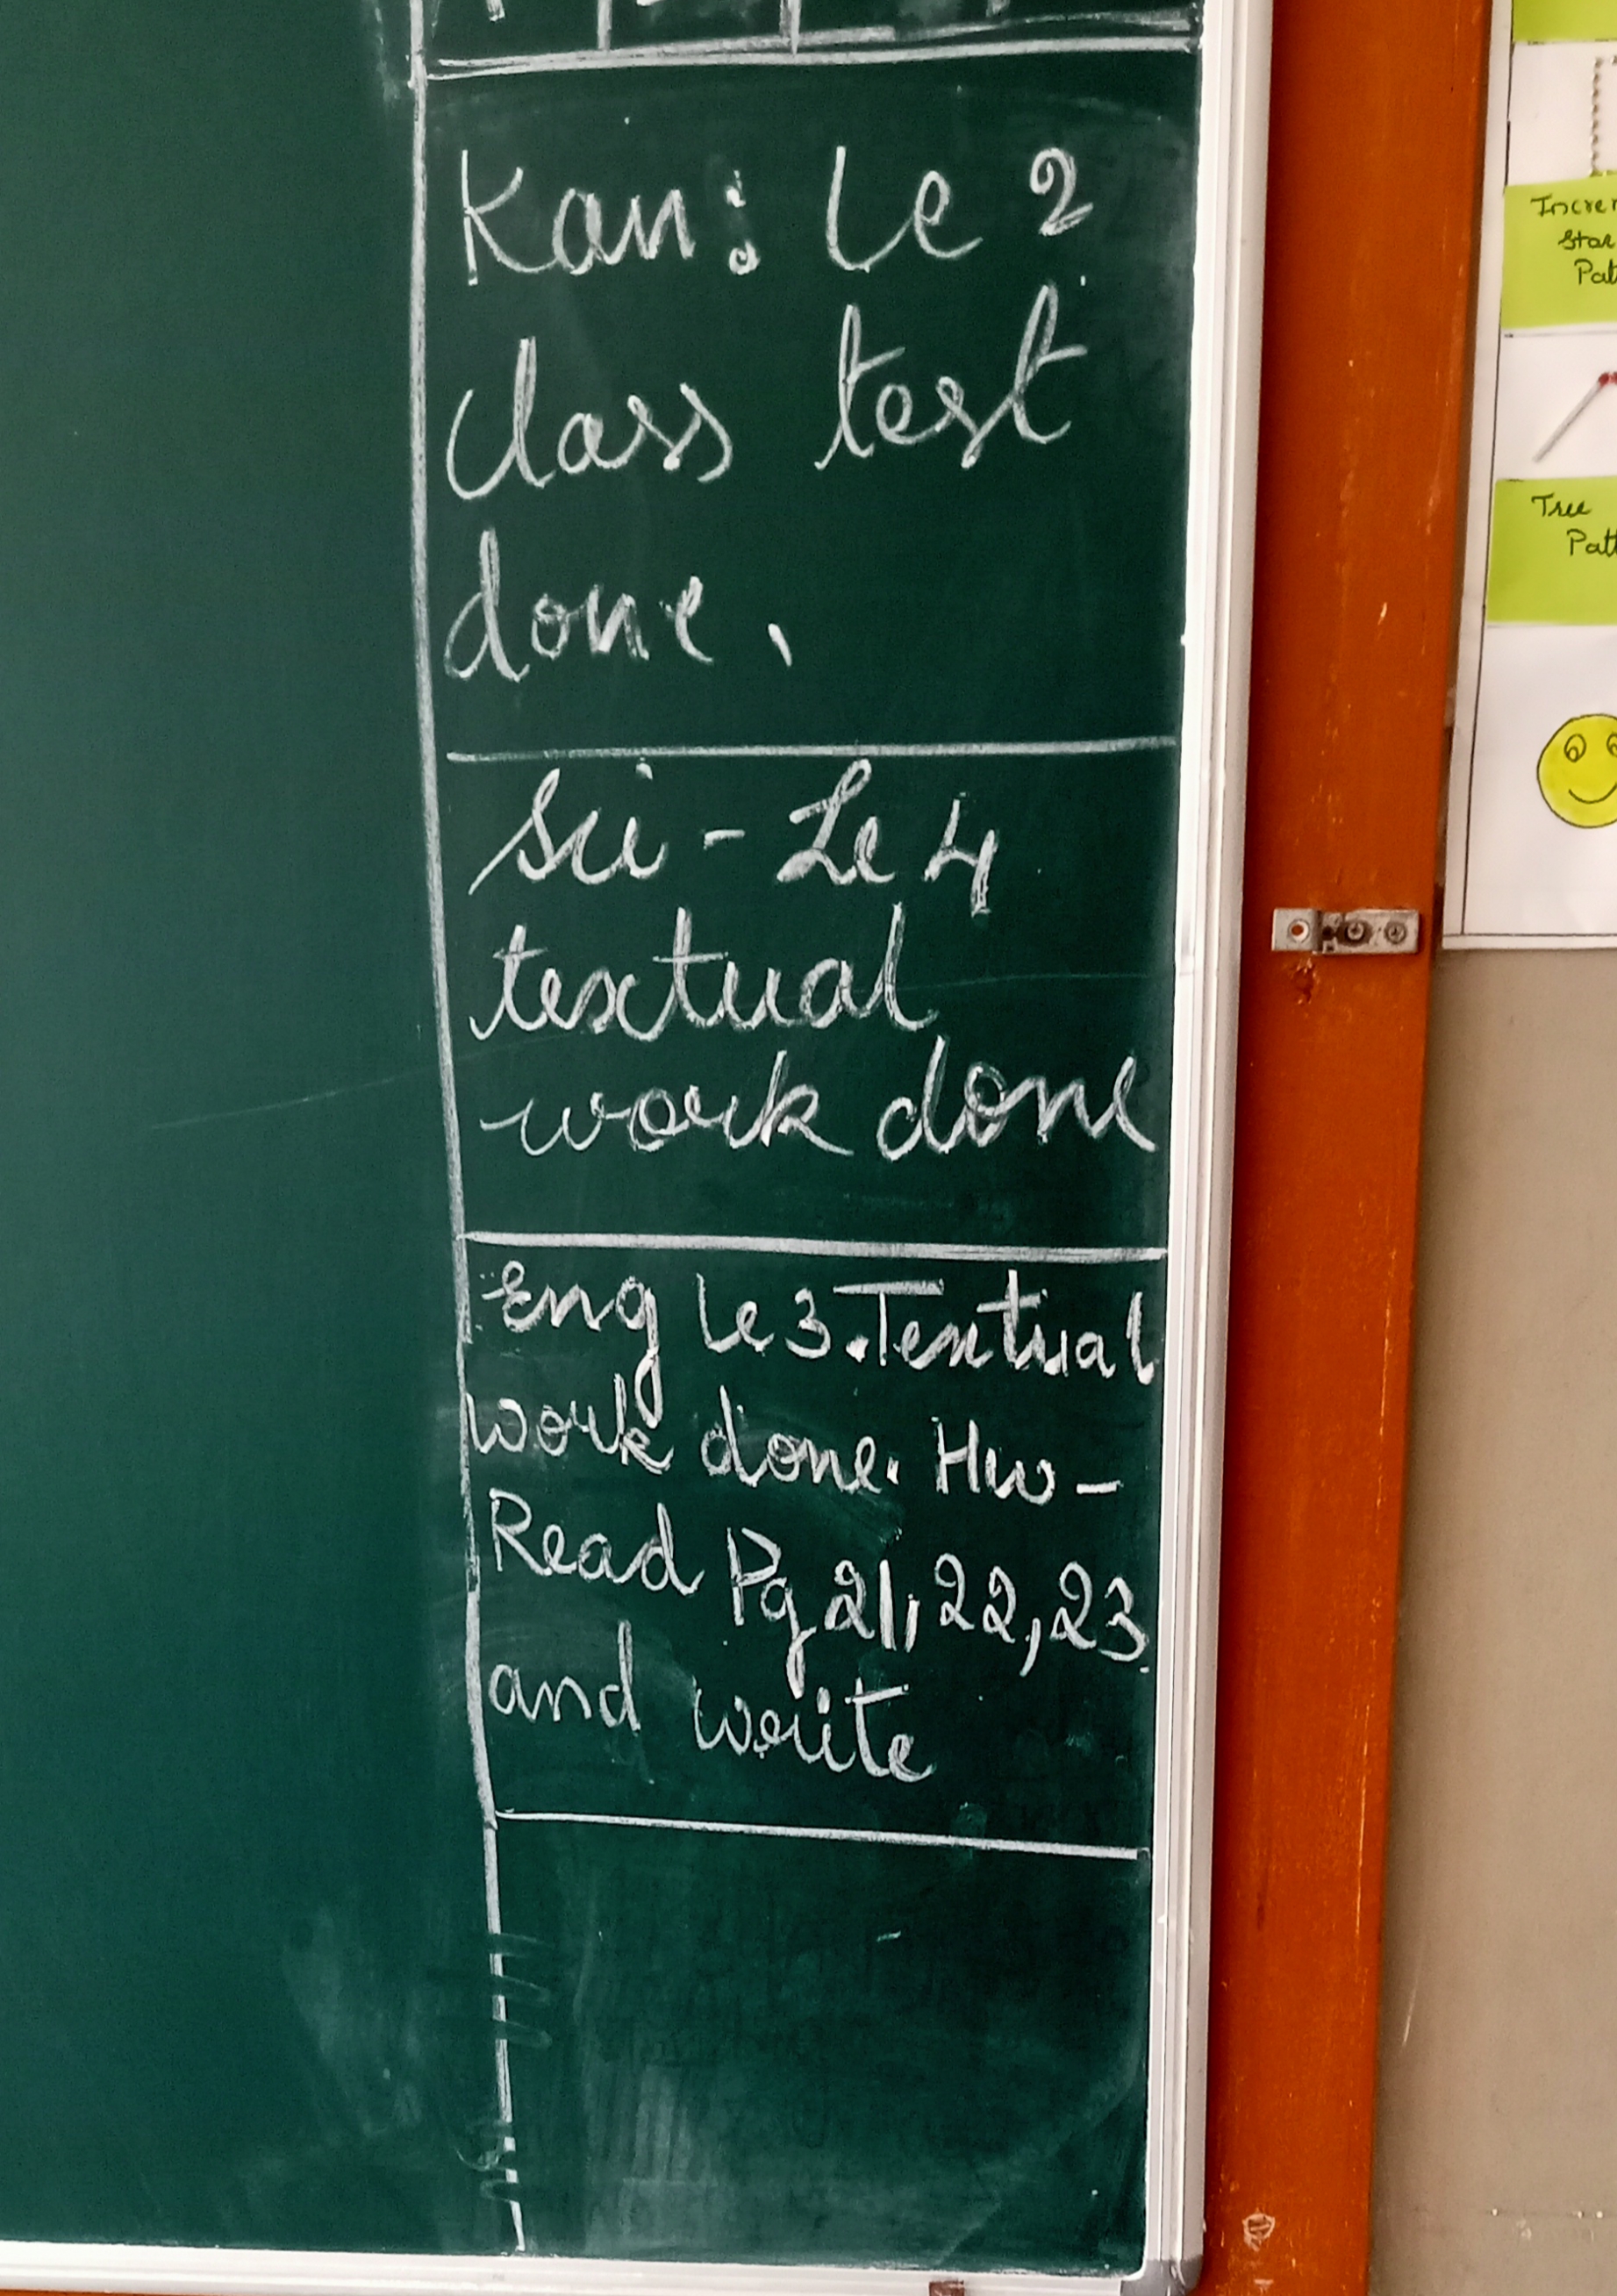 Kan: Le 2
class test
done.
Sci - Le 4
textual
work done
Eng Le 3. Textual
work done. Hw -
Read Pg 21, 22, 23
and write
Star
Tree